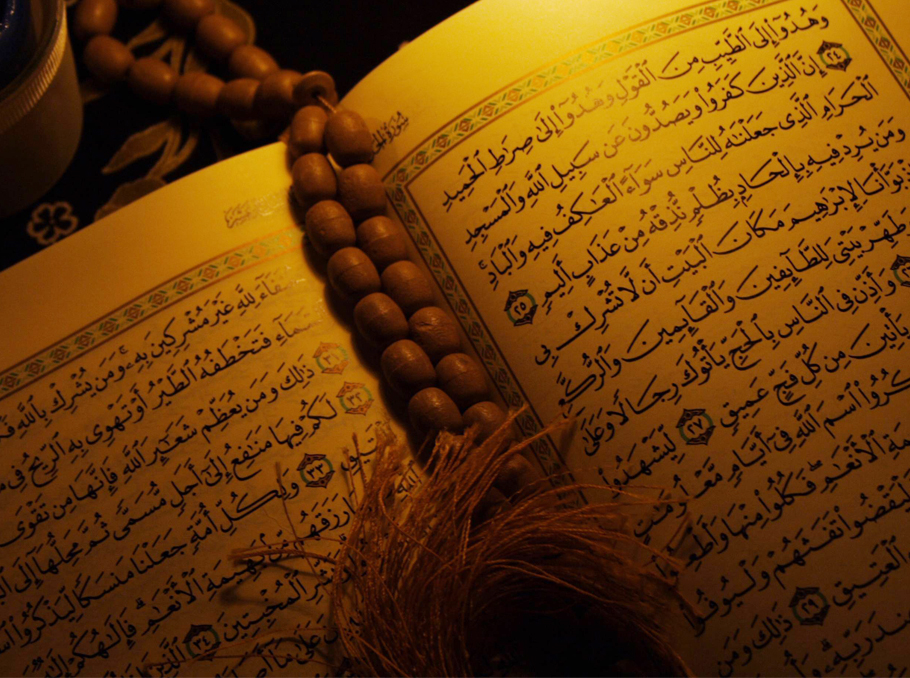 سُورَةُ الحَجِّ
وَهُدُوٓا۟ إِلَى ٱلطَّيِّبِ مِنَ ٱلْقَوْلِ وَهُدُوٓا۟ إِلَىٰ صِرَٰطِ ٱلْحَمِيدِ
٢٤ إِنَّ ٱلَّذِينَ كَفَرُوا۟ وَيَصُدُّونَ عَن سَبِيلِ ٱللَّهِ وَٱلْمَسْجِدِ
ٱلْحَرَامِ ٱلَّذِى جَعَلْنَٰهُ لِلنَّاسِ سَوَآءً ٱلْعَٰكِفُ فِيهِ وَٱلْبَادِ
وَمَن يُرِدْ فِيهِ بِإِلْحَادٍۭ بِظُلْمٍ نُّذِقْهُ مِنْ عَذَابٍ أَلِيمٍ ٢٥
بَوَّأْنَا لِإِبْرَٰهِيمَ مَكَانَ ٱلْبَيْتِ أَن لَّا تُشْرِكْ بِى
وَطَهِّرْ بَيْتِىَ لِلطَّآئِفِينَ وَٱلْقَآئِمِينَ
وَأَذِّن فِى ٱلنَّاسِ بِٱلْحَجِّ يَأْتُوكَ رِجَالًا وَعَلَىٰ
يَأْتِينَ مِن كُلِّ فَجٍّ عَمِيقٍ ٢٧ لِّيَشْهَدُوا۟
ٱسْمَ ٱللَّهِ فِىٓ أَيَّامٍ مَّعْلُومَٰتٍ
ٱلْأَنْعَٰمِ فَكُلُوا۟ مِنْهَا
لْيَقْضُوا۟ تَفَثَهُمْ وَلْيُوفُوا۟
ٱلْعَتِيقِ ٢٩ ذَٰلِكَ وَمَن
لِلَّهِ غَيْرَ مُشْرِكِينَ بِهِۦ وَمَن يُشْرِكْ بِٱللَّهِ
فَتَخْطَفُهُ ٱلطَّيْرُ أَوْ تَهْوِى بِهِ ٱلرِّيحُ فِى
٣١ ذَٰلِكَ وَمَن يُعَظِّمْ شَعَٰٓئِرَ ٱللَّهِ فَإِنَّهَا مِن تَقْوَى
٣٢ لَكُمْ فِيهَا مَنَٰفِعُ إِلَىٰٓ أَجَلٍ مُّسَمًّى ثُمَّ مَحِلُّهَآ إِلَى
٣٣ وَلِكُلِّ أُمَّةٍ جَعَلْنَا مَنسَكًا لِّيَذْكُرُوا۟
رَزَقَهُم بَهِيمَةِ ٱلْأَنْعَٰمِ فَإِلَٰهُكُمْ إِلَٰهٌ
ٱلْمُخْبِتِينَ ٣٤ ٱلَّذِينَ